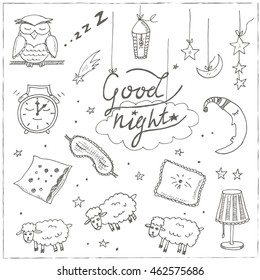 zzZ
Good
night
shutterstock.com · 462575686